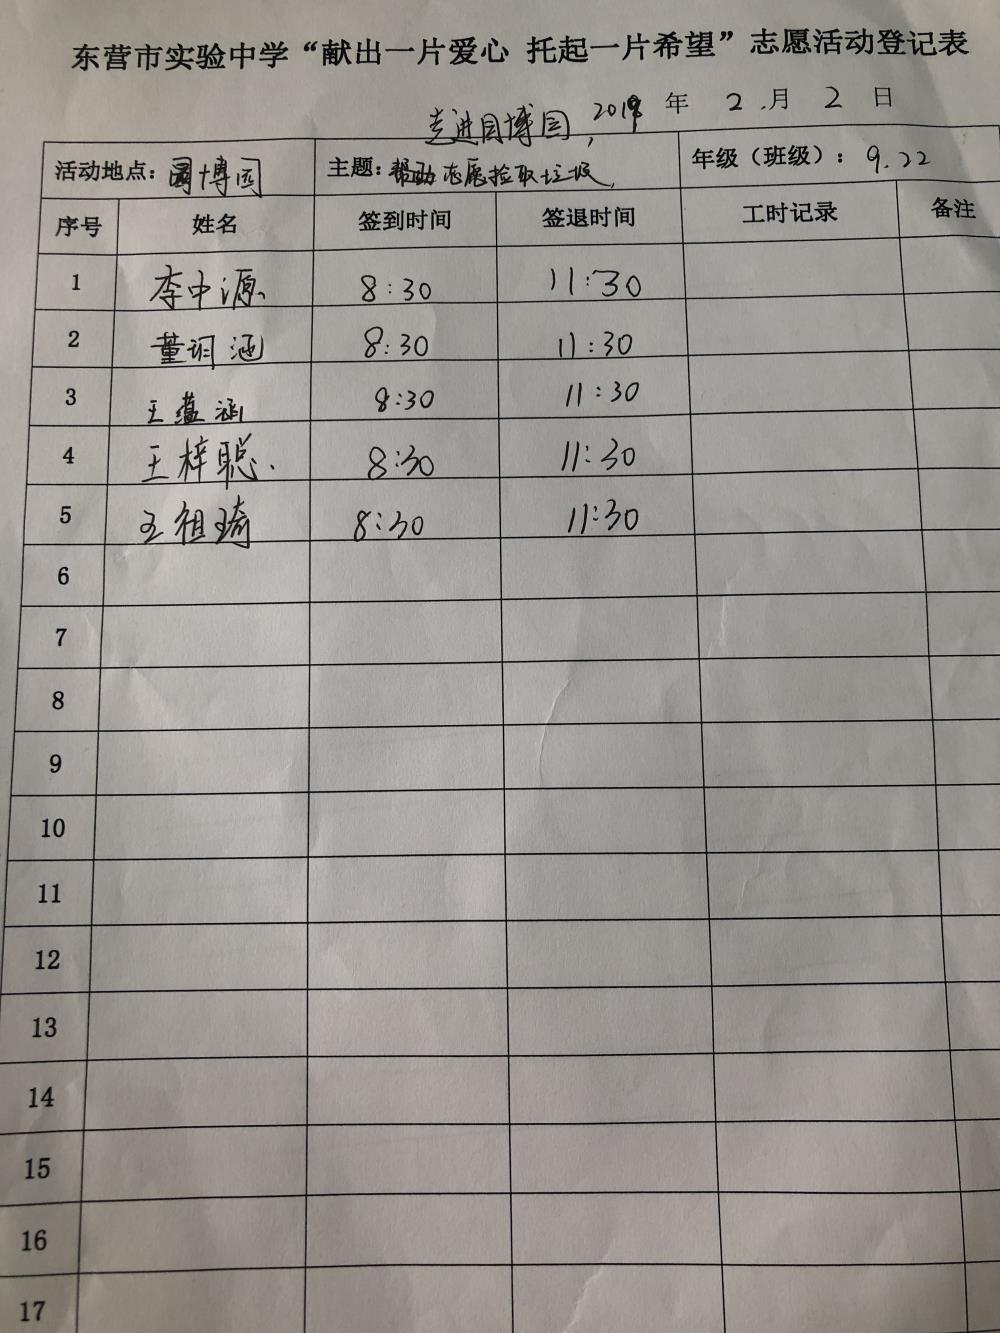 东营市实验中学“献出一片爱心 托起一片希望”志愿活动登记表
走进园博园, 2019 年 2 月 2 日
活动地点：园博园 主题：帮助志愿捡取垃圾, 年级（班级）：9.22
序号 姓名 签到时间 签退时间 工时记录 备注
1 李中源 8:30 11:30
2 董润涵 8:30 11:30
3 王蕴涵 8:30 11:30
4 王梓聪 8:30 11:30
5 王祖琦 8:30 11:30
6
7
8
9
10
11
12
13
14
15
16
17